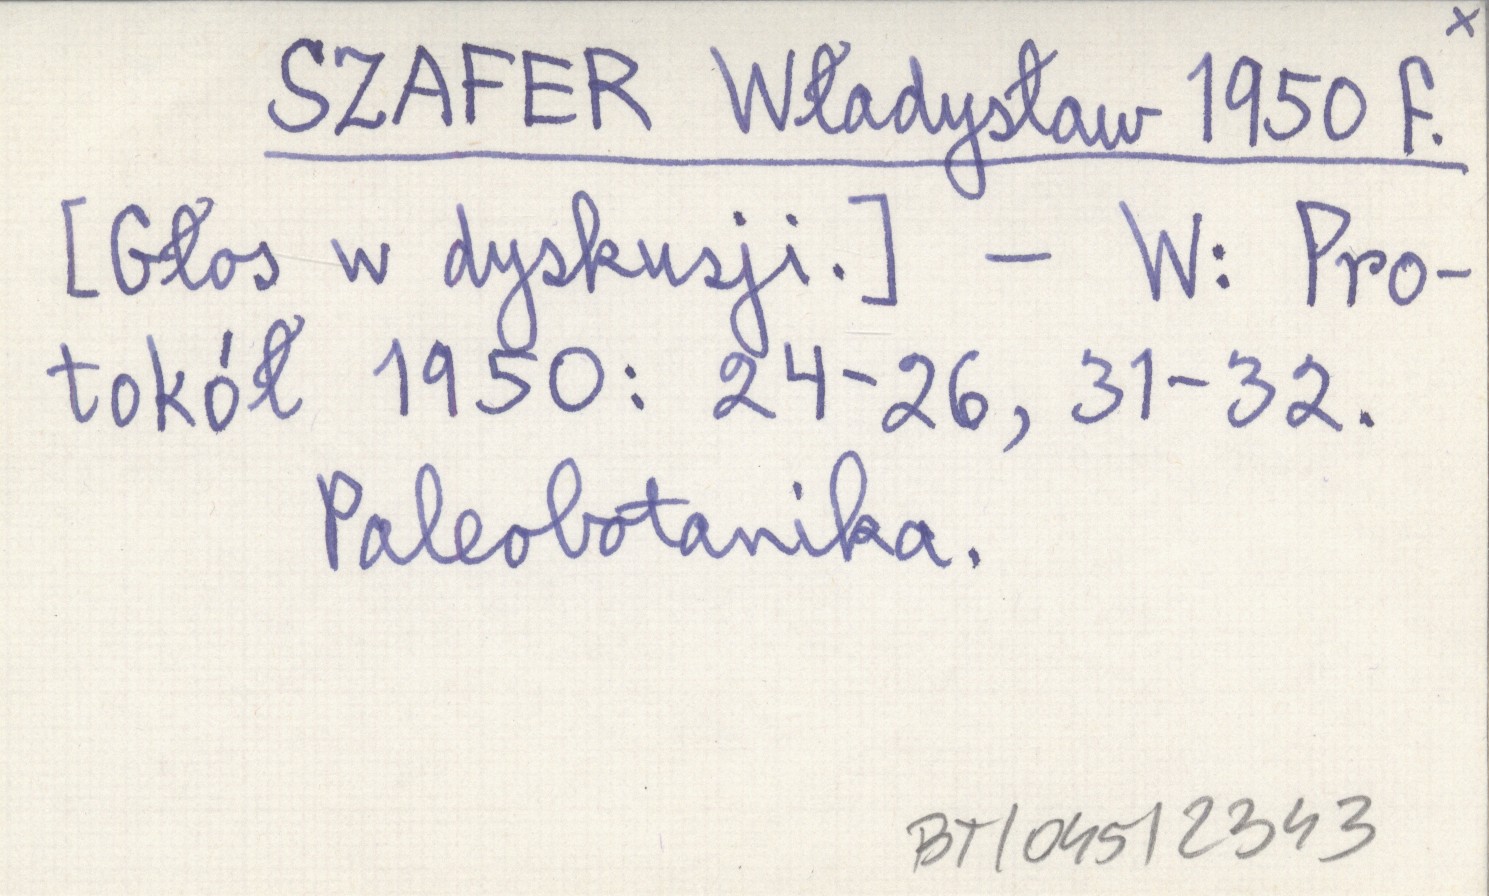 x
SZAFER Władysław 1950 f.
[Głos w dyskusji.] – W: Pro-
tokół 1950: 24-26, 31-32.
Paleobotanika.
BT/045/2343